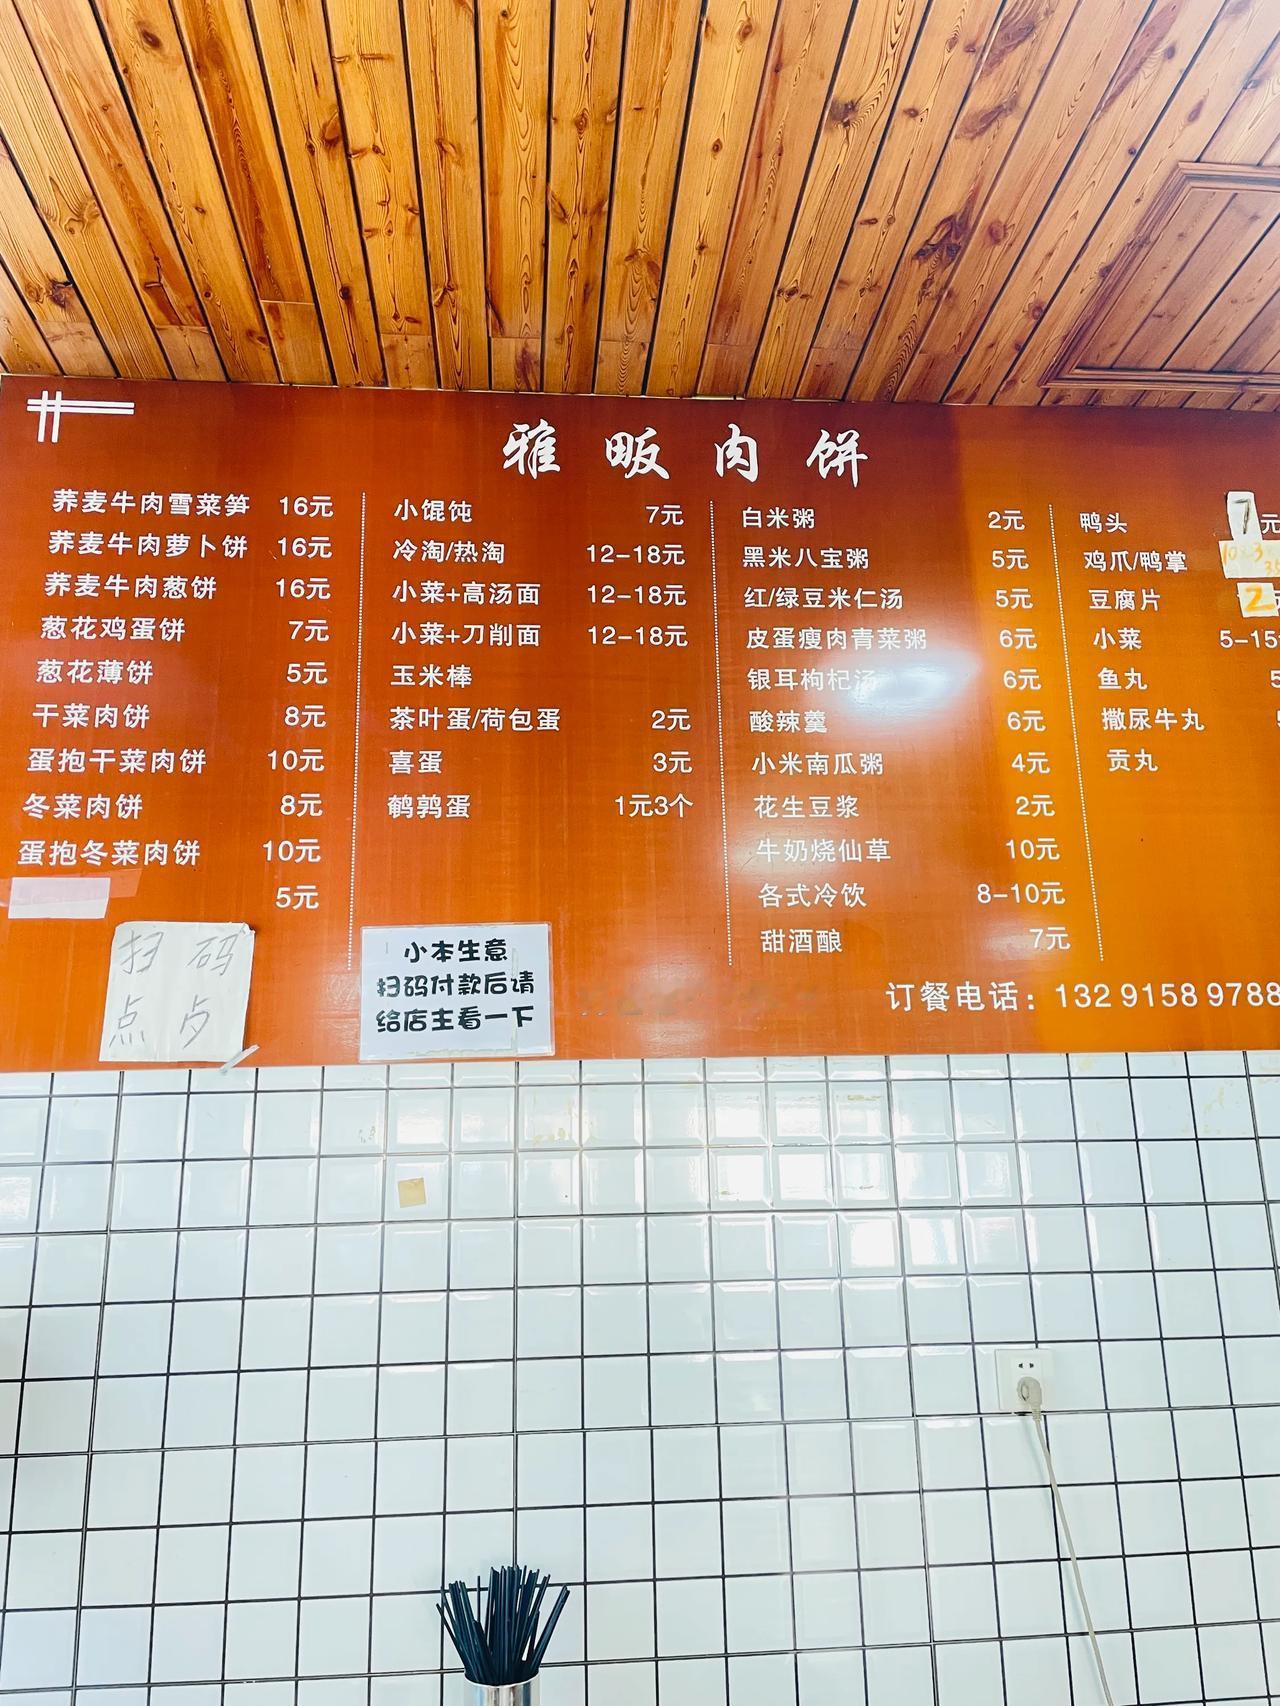 雅畈肉饼
荞麦牛肉雪菜笋 16元
荞麦牛肉萝卜饼 16元
荞麦牛肉葱饼 16元
葱花鸡蛋饼 7元
葱花薄饼 5元
干菜肉饼 8元
蛋抱干菜肉饼 10元
冬菜肉饼 8元
蛋抱冬菜肉饼 10元
5元
小馄饨 7元
冷淘/热淘 12-18元
小菜+高汤面 12-18元
小菜+刀削面 12-18元
玉米棒
茶叶蛋/荷包蛋 2元
喜蛋 3元
鹌鹑蛋 1元3个
白米粥 2元
黑米八宝粥 5元
红/绿豆米仁汤 5元
皮蛋瘦肉青菜粥 6元
银耳枸杞汤 6元
酸辣羹 6元
小米南瓜粥 4元
花生豆浆 2元
牛奶烧仙草 10元
各式冷饮 8-10元
甜酒酿 7元
鸭头 7元
鸡爪/鸭掌
豆腐片 2
小菜 5-15
鱼丸 5
撒尿牛丸
贡丸
扫码
点
小本生意
扫码付款后请
给店主看一下
订餐电话：132 9158 9788